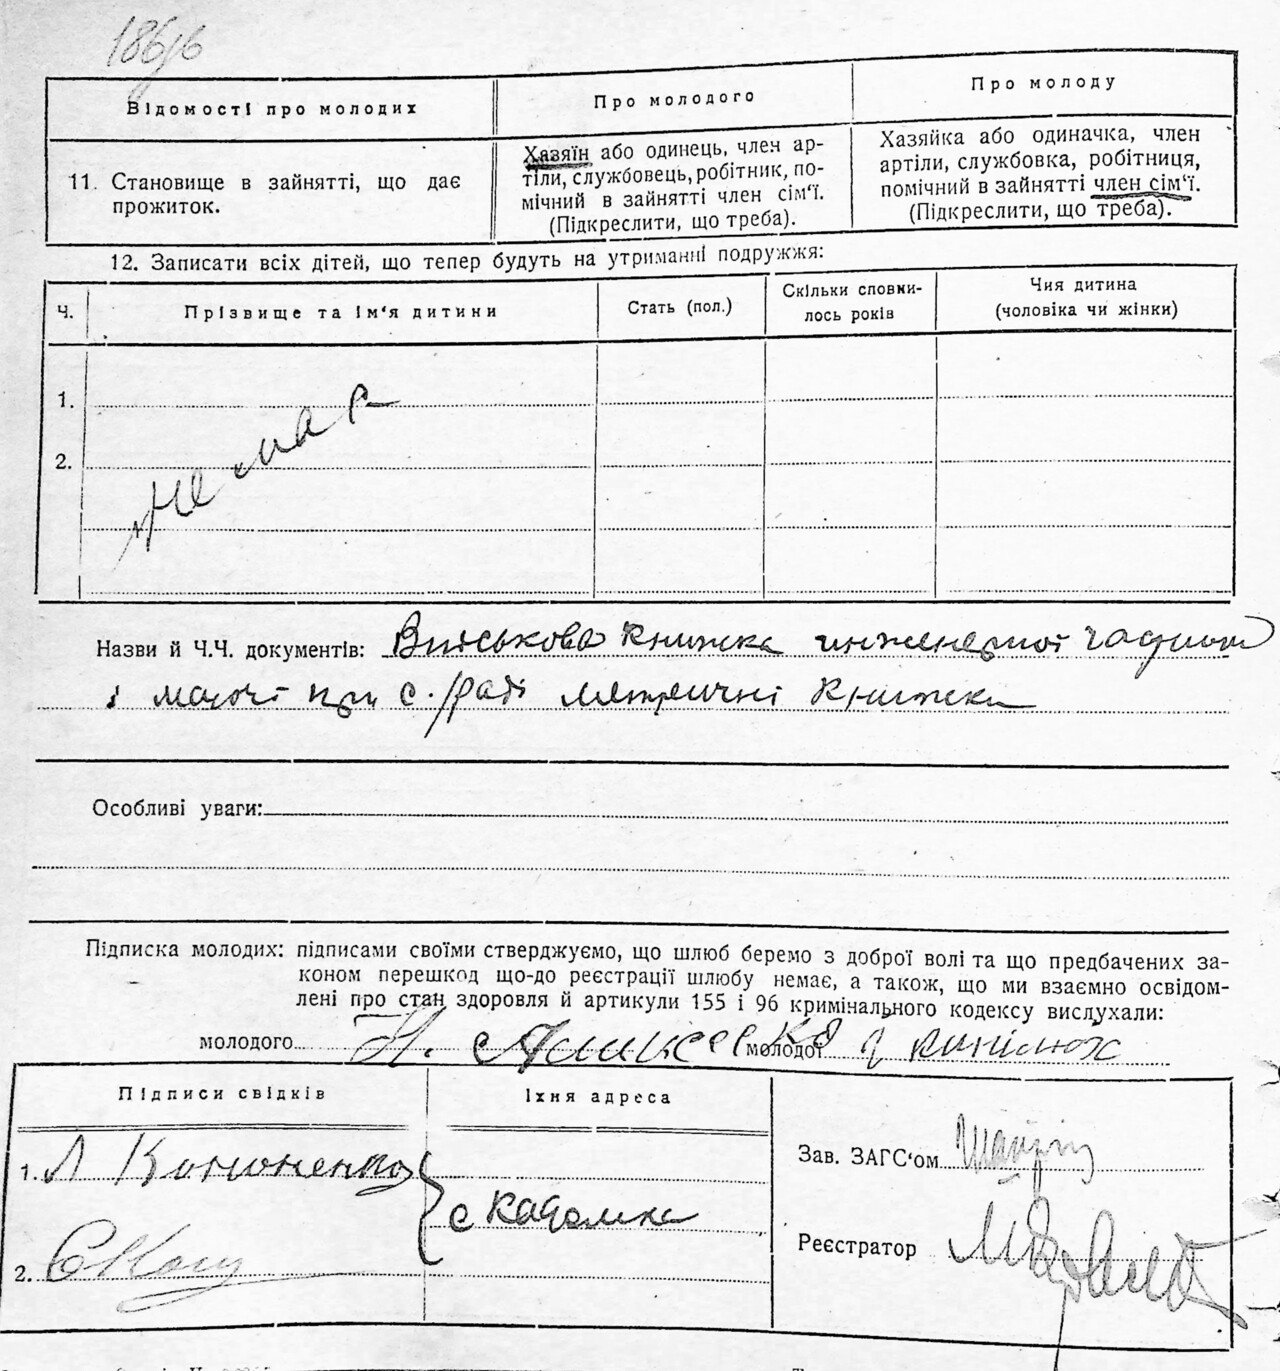 Відомості про молодих
Про молодого
Про молоду
11. Становище в зайнятті, що дає
прожиток.
Хазяїн або одинець, член ар-
тіли, службовець, робітник, по-
мічний в зайнятті член сім'ї.
(Підкреслити, що треба).
Хазяйка або одиначка, член
артіли, службовка, робітниця,
помічний в зайнятті член сім'ї.
(Підкреслити, що треба).
12. Записати всіх дітей, що тепер будуть на утриманні подружжя:
Ч.
Прізвище та ім'я дитини
Стать (пол.)
Скільки сповни-
лось років
Чия дитина
(чоловіка чи жінки)
1.
2.
Немає
Назви й Ч.Ч. документів: Військова книжка
і маючі при с/раді метричні книжки
Особливі уваги:
Підписка молодих: підписами своїми стверджуємо, що шлюб беремо з доброї волі та що предбачених за-
коном перешкод що-до реєстрації шлюбу немає, а також, що ми взаємно освідом-
лені про стан здоровля й артикули 155 і 96 кримінального кодексу вислухали:
молодого
молодої
Підписи свідків
Їхня адреса
1. Л Кононенко
с
2.
Зав. ЗАГС'ом
Реєстратор